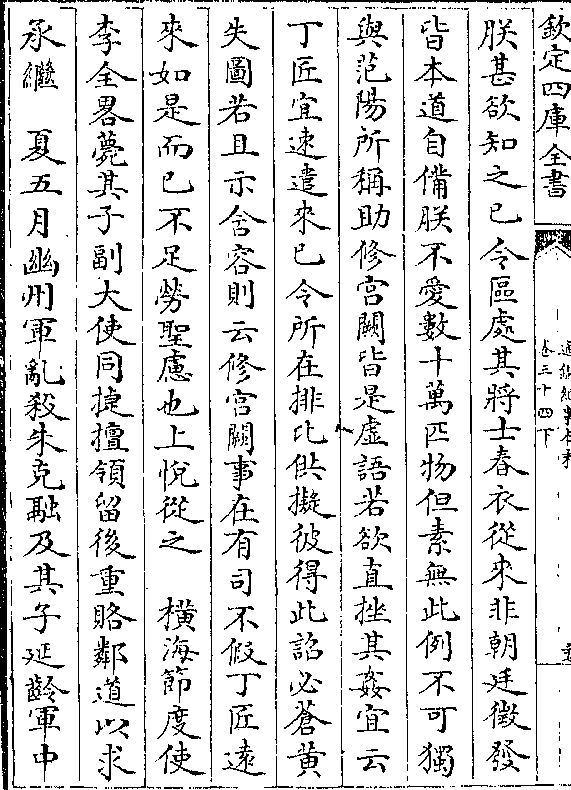 欽定四庫全書
通鑑紀事本末
卷三十四下
朕甚欲知之已令區處其將士春衣從來非朝廷徵發
皆本道自備朕不愛數十萬匹物但素無此例不可獨
與范陽所稱助修宮闕皆是虛語若欲直挫其姦宜云
丁匠宜速遣來已令所在排比供擬彼得此詔必蒼黄
失圖若且示含容則云修宮闕事在有司不假丁匠遠
來如是而已不足勞聖慮也上悅從之　橫海節度使
李全畧薨其子副大使同捷擅領留後重賂鄰道以求
承繼　夏五月幽州軍亂殺朱克融及其子延齡軍中